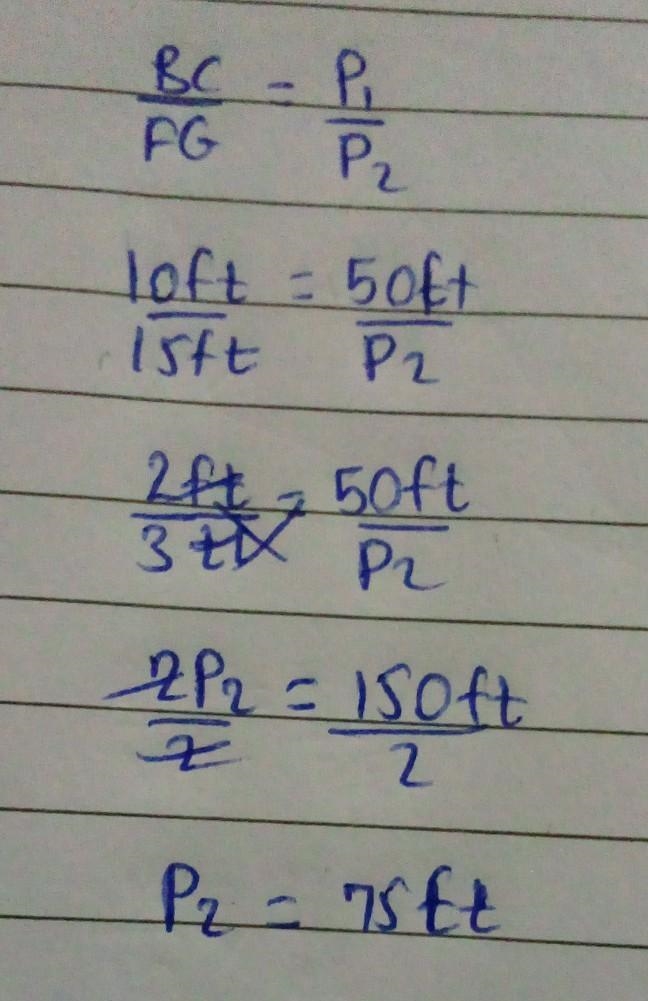 BC/FG = P₁/P₂
10ft/15ft = 50ft/P₂
2ft/3ft = 50ft/P₂
2P₂/2 = 150ft/2
P₂ = 75ft